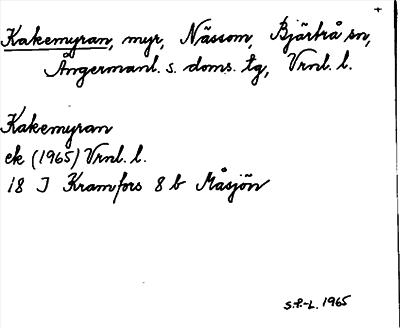 Kakemyran, myr, Nässom, Bjärtrå sn,
Ångermanl. s. doms. tg, Vrnl. l.
Kakemyran
ek (1965) Vrnl. l.
18 J Kramfors 8 b Måsjön
S.F.-L. 1965